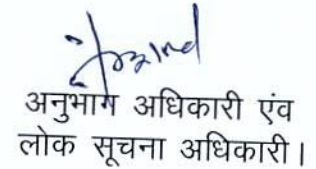 अनुभाग अधिकारी एंव
लोक सूचना अधिकारी।